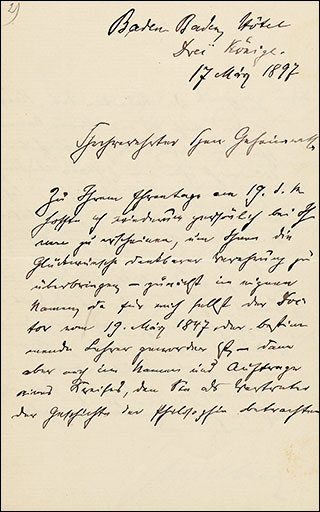 2)
Baden Baden, Hôtel
Drei Könige.
17 März 1897
Hochverehrter Herr Geheimrath,
Zu Ihrem Ehrentage am 19. d. M
hoffte ich wiederum persönlich bei Ih
nen zu erscheinen, um Ihnen die
Glückwünsche dankbarer Verehrung zu
überbringen – zunächst im eignen
Namen, da für mich selbst der Doc
tor vom 19. März 1847 der bestim
mende Lehrer geworden ist, – dann
aber auch im Namen und Auftrage
eines Kreises, den Sie als Vertreter
der Geschichte der Philosophie betrachten